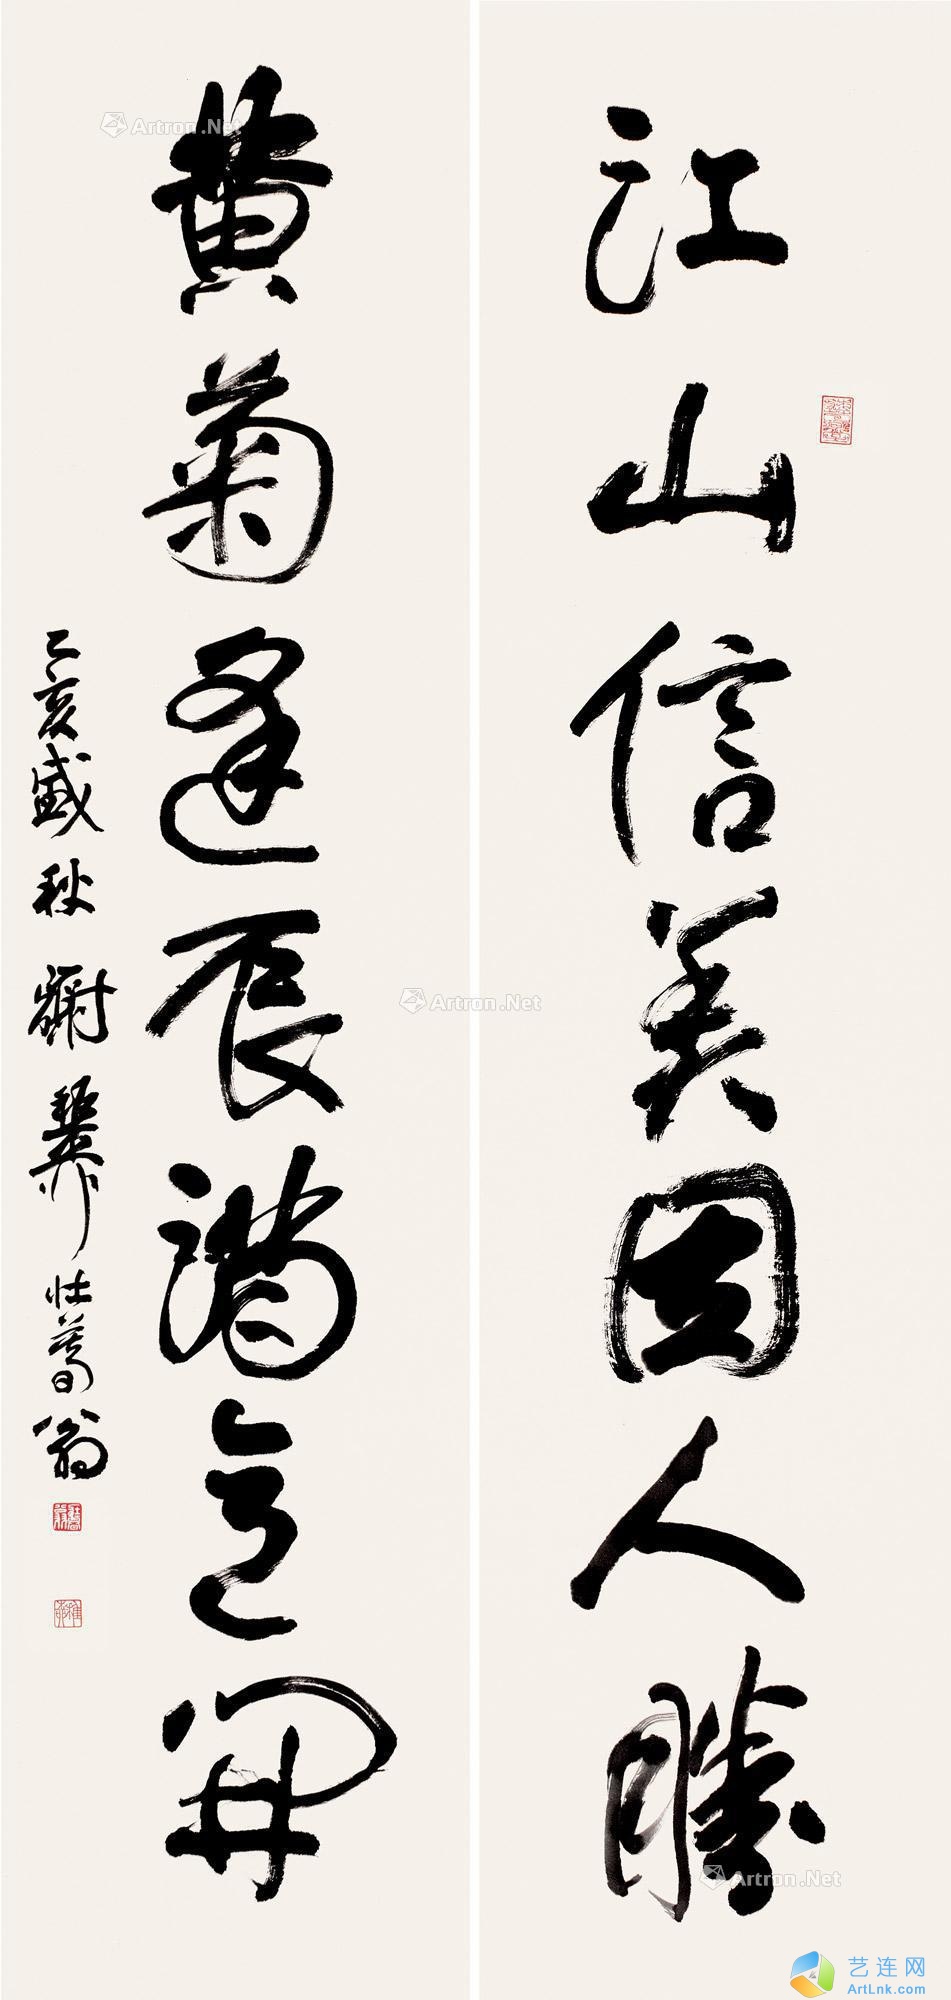 江山信美因人勝
黄菊逢辰滿意開
乙亥盛秋 謝稚柳 壯暮翁
Artron.Net
Artron.Net
Artron.Net
艺连网
ArtLnk.com